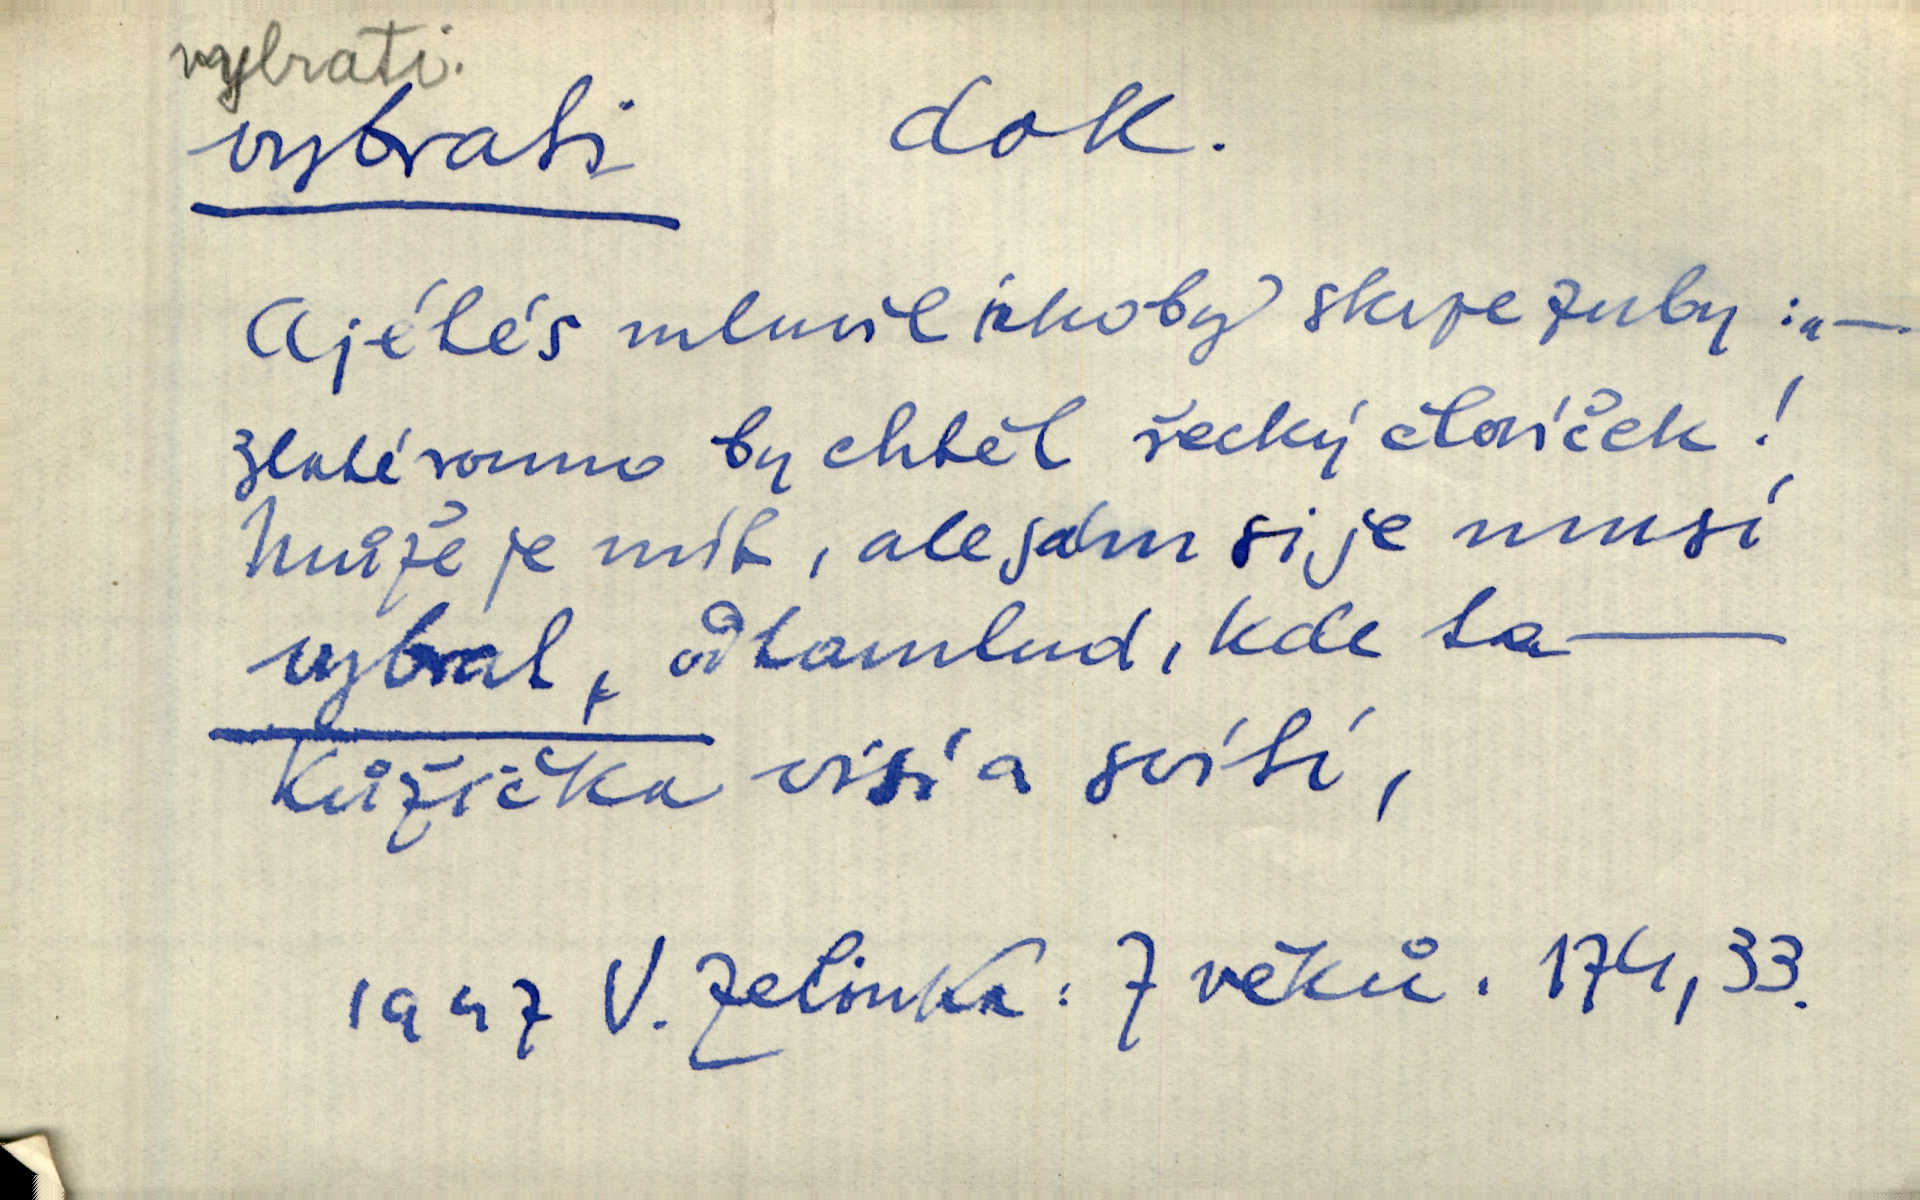 vybrati.
vybrati dok.
Ajétés mluvil jakoby skrze zuby : „ —
zlaté rouno by chtěl šecký človíček !
Může je mít , ale sám si je musí
vybrat , odtamtud , kde ta —
kůžička visí a svítí ,
1947 V. Zelinka : 7 věků . 174 , 33 .